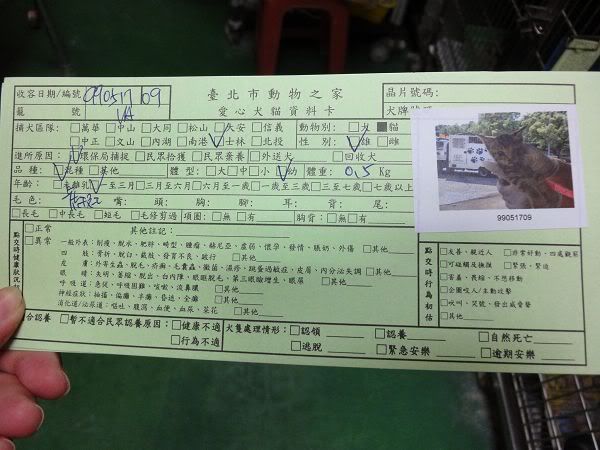 收容日期/編號 990517 09 臺北市動物之家 晶片號碼:
籠 號 VA 愛心犬貓資料卡 犬牌號碼:
捕犬區隊: □萬華□中山□大同□松山□大安□信義 動物別:□犬■貓
□中正□文山□內湖□南港□士林□北投 性別:□雄□雌
進所原因:□環保局捕捉 □民眾拾獲 □民眾棄養 □外送犬 □回收犬
品種:□混種□其他 體型:□大□中□小□幼 體重:0.5 Kg
年齡:□未離乳□至三月□三月至六月□六月至一歲□一歲至三歲□三至七歲□七歲以上
毛色: 嘴: 頭: 胸: 腳: 耳: 背: 尾:
□長毛 □中長毛 □短毛 □毛修剪過 項圈:□無□有 胸背:□無□有
99051709
點交時健康狀況
□正常 其他註記:
□異常
一般外表:削瘦、脫水、跛骱、畸型、腫瘤、赫尼亞、虛弱、懷孕、發情、脹奶、外傷 □其他
四 肢:骨折、脫臼、截肢、發育不良、跛行 □其他
皮 膚:外寄生蟲、脫毛、疥癬、毛囊蟲、黴菌、濕疹、跳蚤過敏症、皮屑、內分泌失調 □其他
眼 睛:失明、萎縮、脫出、白內障、眼瞼脫毛、第三眼瞼增生、眼屎 □其他
呼吸道:急促、呼吸困難、咳嗽、流鼻膿 □其他
神經症狀:抽搐、偏癱、半癱、昏迷、全癱 □其他
消化道/泌尿道:嘔吐、腹瀉、血便、血尿、菜花 □其他
點交時行為初估
□友善、親近人 □非常好動、四處觀察
□可碰觸及撫摸 □緊張、緊迫
□害羞、畏縮、不想移動
□企圖咬人/主動攻擊
□吠叫、哭號、發出威脅聲
□其他
合認養 □暫不適合民眾認養原因:□健康不適 犬隻處理情形:□認領 □認養 □自然死亡
□行為不適 □逃脫 □緊急安樂 □逾期安樂